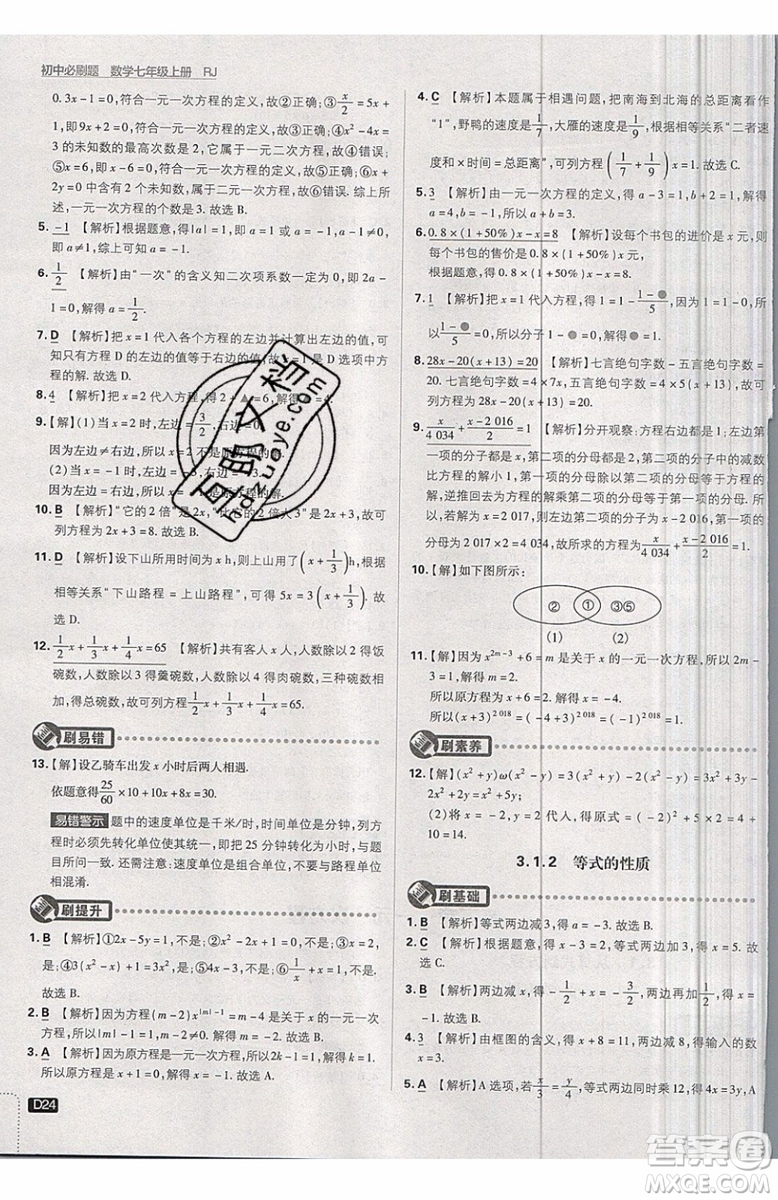 初中必刷题 数学七年级上册 RJ
0.3x-1=0,符合一元一次方程的定义,故②正确;③x/2=5x+
1,即9x+2=0,符合一元一次方程的定义,故③正确;④x²-4x=
3的未知数的最高次数是2,它属于一元二次方程,故④错误;
⑤x=6,即x-6=0,符合一元一次方程的定义,故⑤正确;⑥x+
2y=0中含有2个未知数,属于二元一次方程,故⑥错误.综上所
述,一元一次方程的个数是3.故选B.
5. -1 【解析】根据题意,得|a|=1,即a=±1.
又a-1≠0,综上可知a=-1.
6. 1/2 【解析】由“一次”的含义知二次项系数一定为0,即2a-
1=0,解得a=1/2.
7. D 【解析】把x=1代入各个方程的左边并计算出左边的值,可
知只有方程D的左边的值等于右边的值,所以四个选项中方
程解是x=1的是D.故选D.
8. 4 【解析】把x=1代入方程,得2+▲=6,解得▲=4.
9. 【解】(1)当x=3/2时,左边=
因为左边≠右边,所以x=
(2)当x=3时,左边=
因为左边=右边,所以x=
10. B 【解析】“它的2倍”是2x,“比它的2倍大3”是2x+3,故
可列方程为2x+3=8.故选B.
11. D 【解析】设下山所用时间为x h,则上山所用时间为(x+1/3)h,根据
等量关系“下山路程=上山路程”,可得5x=3(x+1/3).故
选D.
12. 1/2x+1/3x+1/4x=65 【解析】设共有客人x人,人数除以2得饭
碗数,人数除以3得羹碗数,人数除以4得肉碗数,三种碗数相加
得总碗数,故可列方程1/2x+1/3x+1/4x=65.
刷易错
13. 【解】设乙骑车出发x小时后两人相遇.
依题意得25/60×10+10x+8x=30.
易错警示 题中的速度单位是千米/时,时间单位是分钟,列方
程时必须先转化单位统一的量,即把25分钟转化成小时,与问
题目标一致.还需注意:速度单位是组合单位,不要与路程单位
相混淆.
刷提升
1. B 【解析】①2x-5y=1,不是;②x²-2x+1=0,不是;③
是;④3(x-2)=3x-1,不是;⑤x-1/x=0,不是;⑥-3a=0,是.故
选B.
2. B 【解析】因为方程(m-2)x^(|m|-1)=m-4是关于x的一元一次
方程,所以|m|-1=1且m-2≠0,解得m=-2.故选B.
3. A 【解析】因为原方程是一元一次方程,所以2k=0,解得k=0,
所以原方程是-4x+1=5,解得x=-1.故选A.
D24
4. C 【解析】本题属于相遇问题,把南海到北海的总距离看作
“1”,野鸭的速度是1/7,大雁的速度是1/9,根据相等关系“二者速
度和×时间=总距离”,可列方程(1/7+1/9)x=1.故选C.
5. 3 【解析】由一元一次方程的定义,得a-3=1,b+2=1,解得
a=4,b=-1,则a+b=3.
6. 0.8×(1+50%)x-x=8 【解析】设每个书包的进价是x元,则
每个书包的售价是0.8×(1+50%)x元.
根据题意,得0.8×(1+50%)x-x=8.
7. 1 【解析】将x=1代入方程,得2-(1-●)/5=1,
所以(1-●)/5=
8. 28x-20(x+13)=20 【解析】七言绝句字数-五言绝句字数=
20,即4×7x-4×5(x+13)=20,所以28x-20(x+13)=20.
9. x/4 034+(x-2 016)/2=1 【解析】分开观察:方程左边
一项的分子都是x,左边第二项的分子中的常数
比方程的解小1,第一项的分母除以第二项的分母等于方程的
解,逆推回去为方程的解乘第二项的分母等于第一项的分母,
所以若x=2 017,则左边第二项的分子为x-2 016,左边第一项
分母为2 017×2=4 034,故所求的方程为x/4 034+(x-2 016)/2=1.
10. 【解】如下图所示:
② ① ③⑤
(1) (2)
11. 【解】因为x^(2m-3)+6=m是关于x的一元一次方程,所以2m-
3=1.所以m=2.
所以原方程为x+6=2,解得x=-4.
所以(3+x)^2 018=(3-4)^2 018=(-1)^2 018=1.
刷素养
12. 【解】(1)(x²+y)ω(x²-y)=(x²+y)+(x²-y)=x²+y+x²-
y=2x².
(2)将x=-2代入,得原式=2x²=2×(-2)²=2×4=8.
3.1.2 等式的性质
刷基础
1. B 【解析】等式两边减3,得a=0.故选B.
2. C 【解析】根据题意,得a-1/2+1/2=-1/2-1/2,所以a=
-1.故选B.
4. 3 【解析】由框图的含义,得-2x+8=2,解得x=3.
5. A 【解析】A选项,若x/3=y/4,等式两边同时乘12,得4x=3y,故